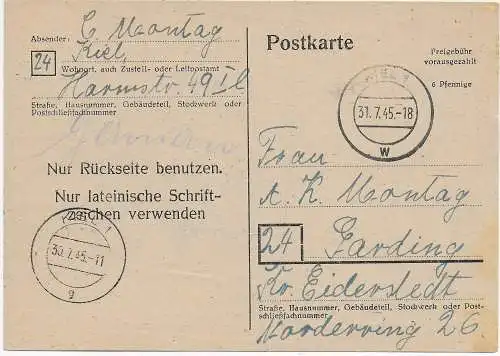 Absender: C. Montag
Kiel,
24 Wohnort, auch Zustell- oder Leitpostamt
Harmstr. 49 I l
Straße, Hausnummer, Gebäudeteil, Stockwerk oder
Postschließfachnummer
Nur Rückseite benutzen.
Nur lateinische Schrift-
zeichen verwenden
KIEL 1
30.7.45.-11
g
Postkarte
Freigebühr
vorausgezahlt
6 Pfennige
KIEL 1
31.7.45.-18
W
Frau
A. K. Montag
24 Garding
Kr. Eiderstedt
Straße, Hausnummer, Gebäudeteil, Stockwerk oder Post-
schließfachnummer
Norderring 26